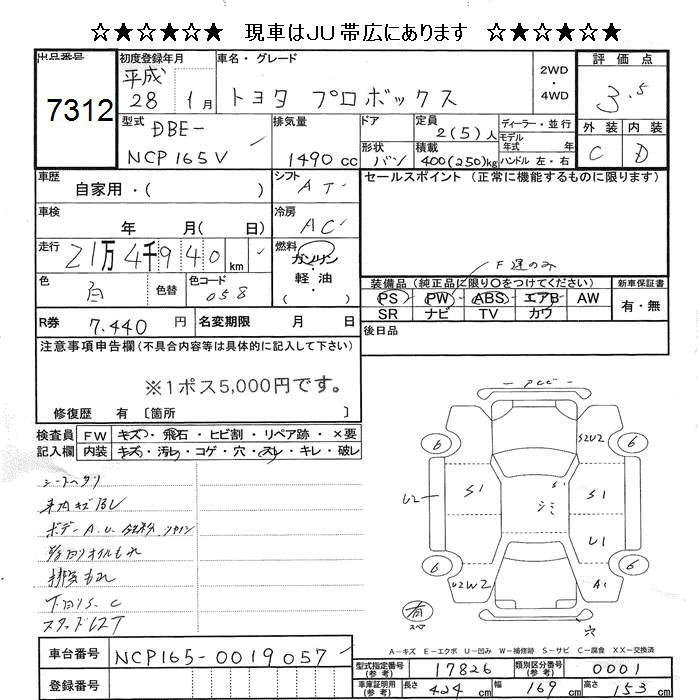 ☆★☆★☆★ 現車はJU帯広にあります ☆★☆★☆★
出品番号 7312
初度登録年月 平成 28 1月
車名・グレード トヨタ プロボックス
2WD ・ 4WD
評価点 3.5
外装 内装
C D
型式 DBE- NCP165V
排気量 1490 cc
ドア
形状 バン
定員 2(5)人
積載 400(250)kg
ディーラー・並行
モデル年式 年
ハンドル 左・右
車歴 自家用・( )
シフト AT
セールスポイント (正常に機能するものに限ります)
車検 年 月( 日)
冷房 AC
走行 21万4千940 km
燃料 ガソリン・軽油
F運のみ
色 白 色替 色コード 058
装備品 (純正品に限り○をつけてください)
PS PW ABS エアB AW
SR ナビ TV カワ
新車保証書 有・無
R券 7.440 円 名変期限 月 日
後日品
注意事項申告欄 (不具合内容等は具体的に記入して下さい)
※1ポス5,000円です。
修復歴 有 〔箇所 〕
検査員記入欄
FW キズ・飛石・ヒビ割・リペア跡・×要
内装 キズ・汚れ・コゲ・穴・スレ・キレ・破レ
シートヘタリ
下回りS.C
スタッドレスT
6 6
S2U2
U2 S1 S1 シミ S1
U1
6 6
U2W2 A1
有
スペア
穴
A-キズ E-エクボ U-凹み W-補修跡 S-サビ C-腐食 XX-交換済
車台番号 NCP165-0019057
登録番号
型式指定番号 (参考) 17826 類別区分番号 (参考) 0001
車庫証明用 (参考) 長さ 424 cm 幅 169 cm 高さ 153 cm